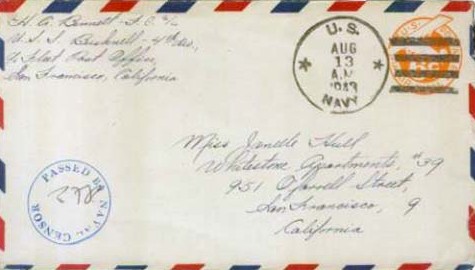 H. A. Bennett - F.C. 3/c
U.S.S. Bushnell - 4th Div.,
% Fleet Post Office,
San Francisco, California
U.S.
AUG
13
A.M.
1943
NAVY
U.S.
6¢
Miss Janelle Hull
Whitestone Apartments, #39
951 O'Farrell Street,
San Francisco, 9
California
PASSED BY
NAVAL CENSOR